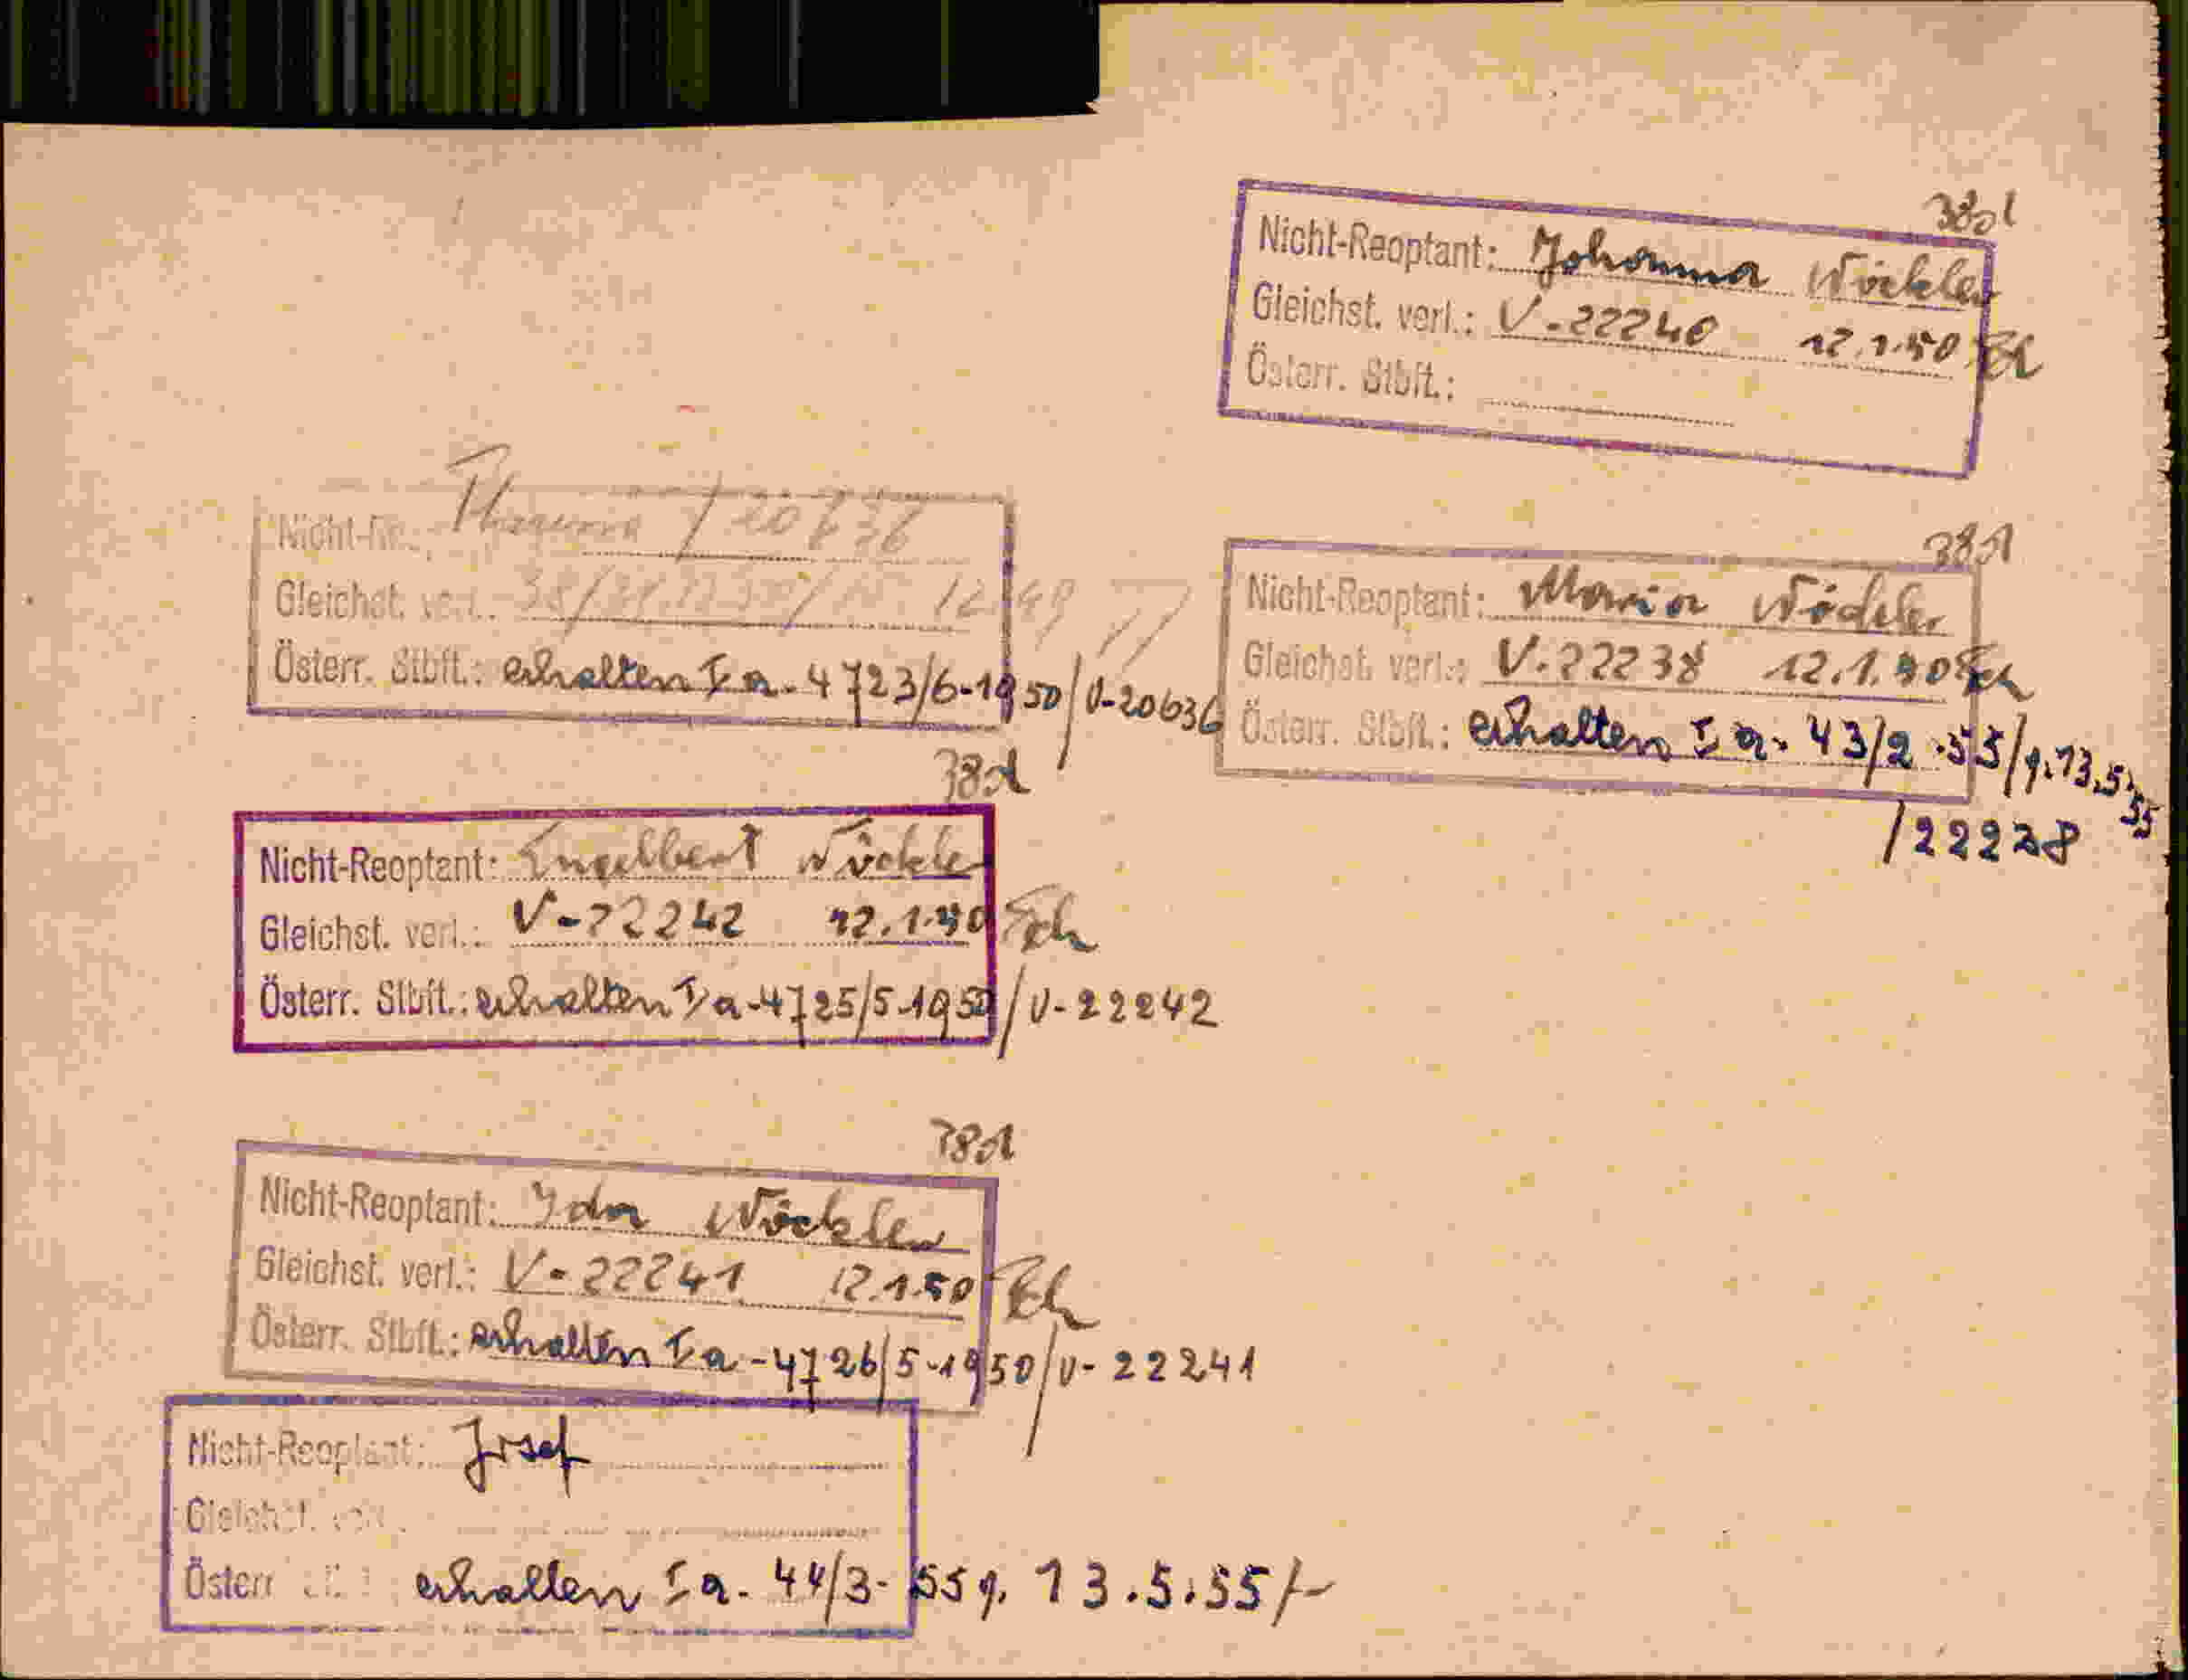 3801
Nicht-Reoptant: Johanna Wöckler
Gleichst. verl.: V-22240 12.1.50
Österr. Stbft.:
Nicht-Re.: 20636
Gleichst. verl.: 12.49
Österr. Stbft.: erhalten I a-4723/6-1950/V-20636
Nicht-Reoptant: Maria Wöckler
Gleichst. verl.: V-22238 12.1.50
Österr. Stbft.: erhalten I a-43/2-55/g.13.5.
55
/22238
Nicht-Reoptant: Engelbert Wöckler
Gleichst. verl.: V-22242 12.1.50
Österr. Stbft.: erhalten I a-4725/5-1950/V-22242
Nicht-Reoptant: Ida Wöckler
Gleichst. verl.: V-22241 12.1.50
Österr. Stbft.: erhalten I a-4726/5-1950/V-22241
Nicht-Reoptant: Josef
Gleichst. verl.
Österr erhalten I a-44/3-55 g. 13.5.55/-